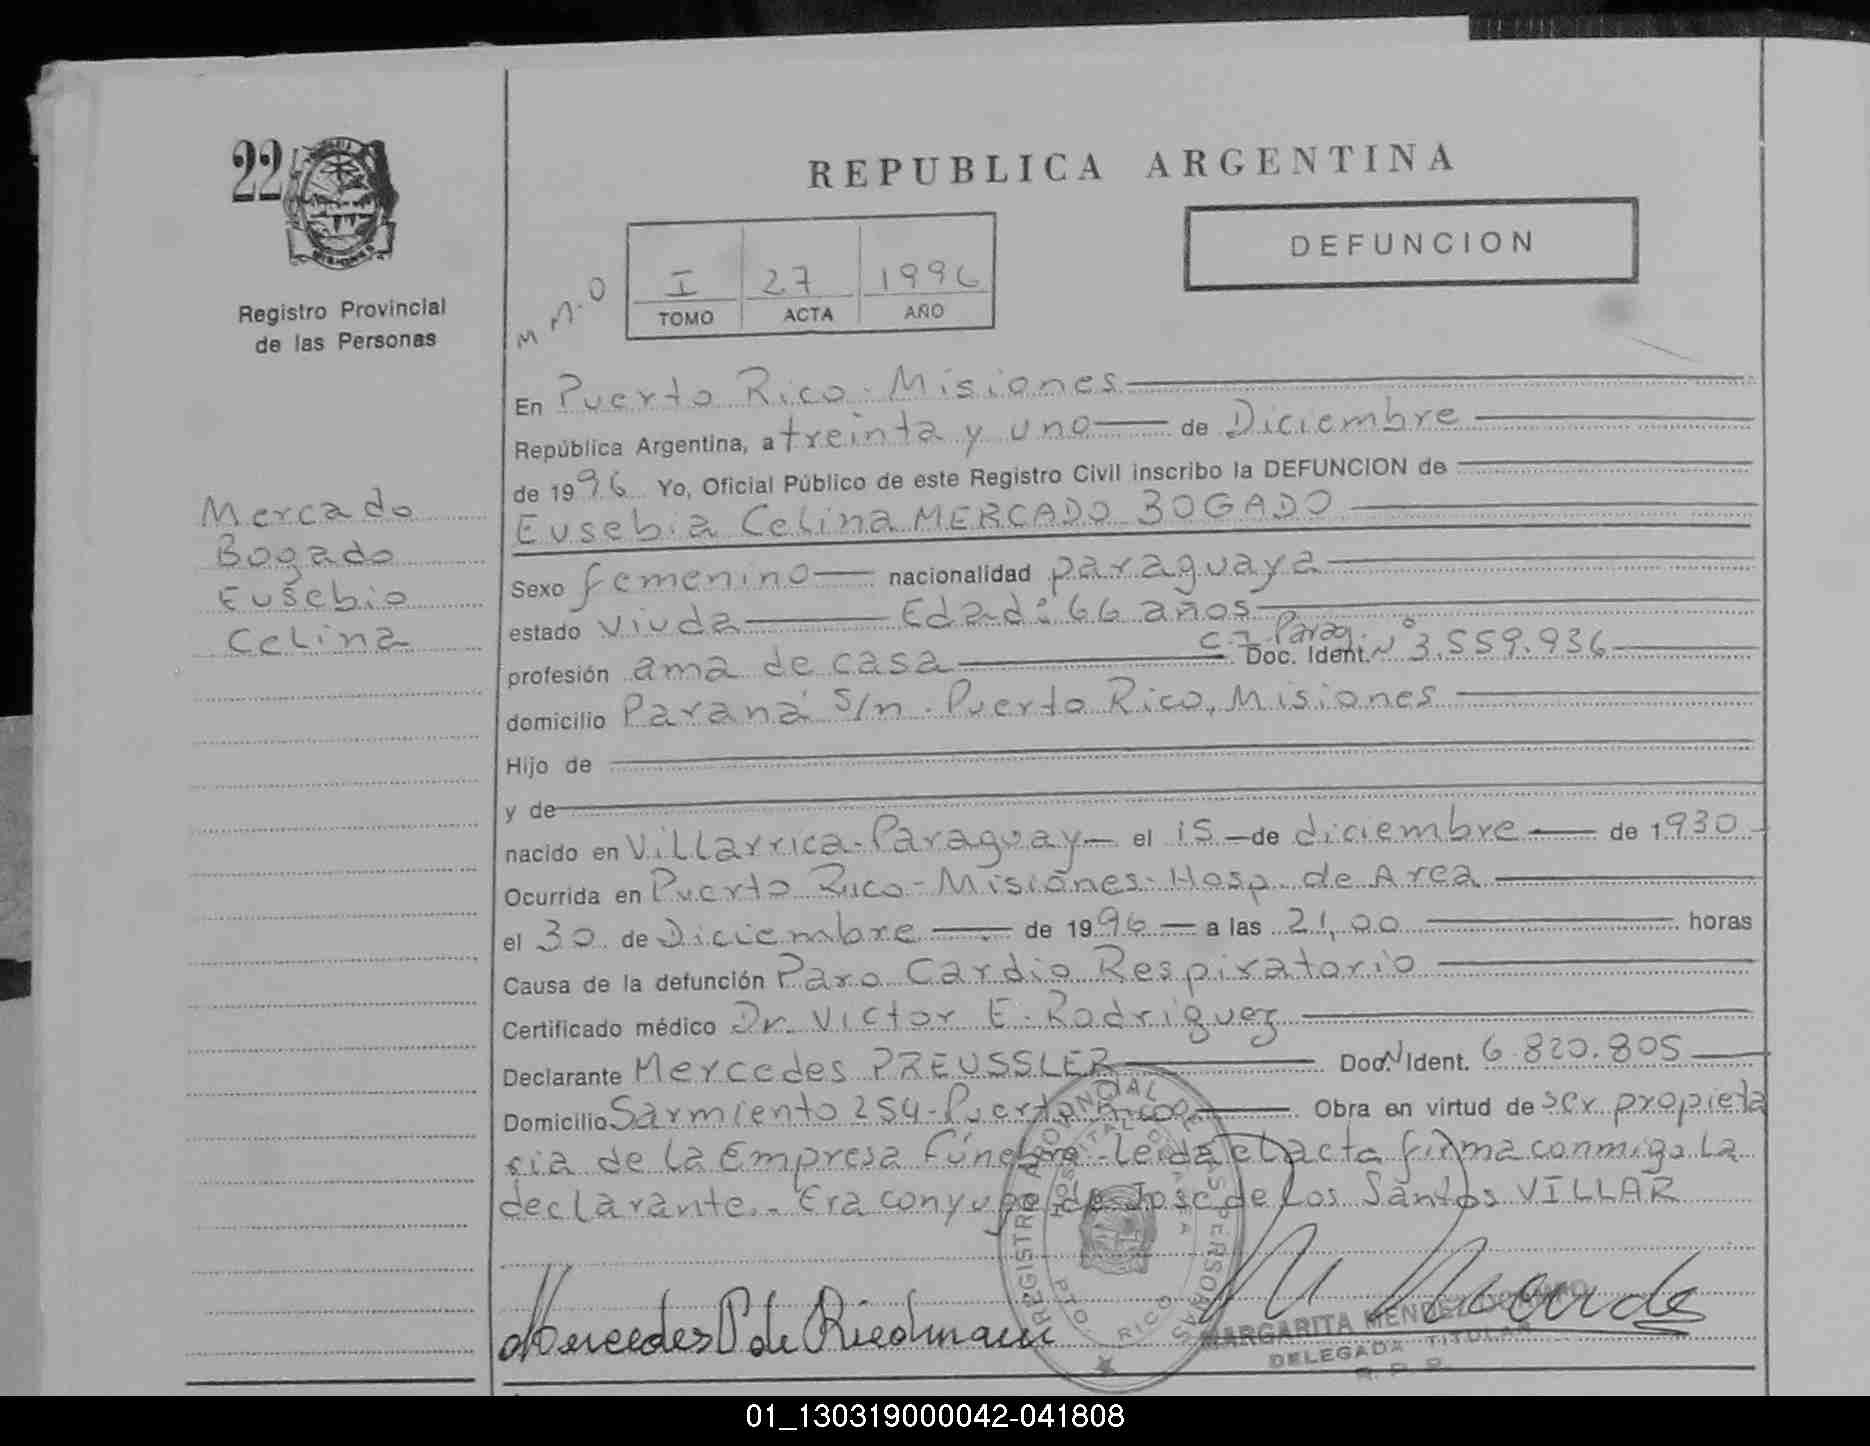 22
Registro Provincial
de las Personas
Mercado
Bogado
Eusebio
Celina
REPUBLICA ARGENTINA
DEFUNCION
I 27 1996
TOMO ACTA AÑO
En Puerto Rico - Misiones
República Argentina, a treinta y uno de Diciembre
de 1996 Yo, Oficial Público de este Registro Civil inscribo la DEFUNCION de
Eusebia Celina MERCADO BOGADO
Sexo femenino nacionalidad paraguaya
estado viuda Edad: 66 años
profesión ama de casa C.I. Parag. Doc. Ident. Nº 3.559.936
domicilio Paraná s/n. Puerto Rico, Misiones
Hijo de
y de
nacido en Villarrica - Paraguay - el 15 - de diciembre de 1930
Ocurrida en Puerto Rico - Misiones - Hosp. de Area
el 30 de Diciembre de 1996 a las 21,00 horas
Causa de la defunción Paro Cardio Respiratorio
Certificado médico Dr. Victor E. Rodriguez
Declarante Mercedes PREUSSLER Doc. N Ident. 6.820.805
Domicilio Sarmiento 254 - Puerto Rico Obra en virtud de ser propieta
ria de la Empresa fúnebre - Leida el acta firma conmigo la
declarante. - Era conyuge de Jose de los Santos VILLAR
Mercedes P de Riedmann
MARGARITA MENDEZ
DELEGADA TITULAR
R. P. P.
REGISTRO PROVINCIAL DE LAS PERSONAS
HOSPITAL DE AREA
PTO RICO
01_130319000042-041808